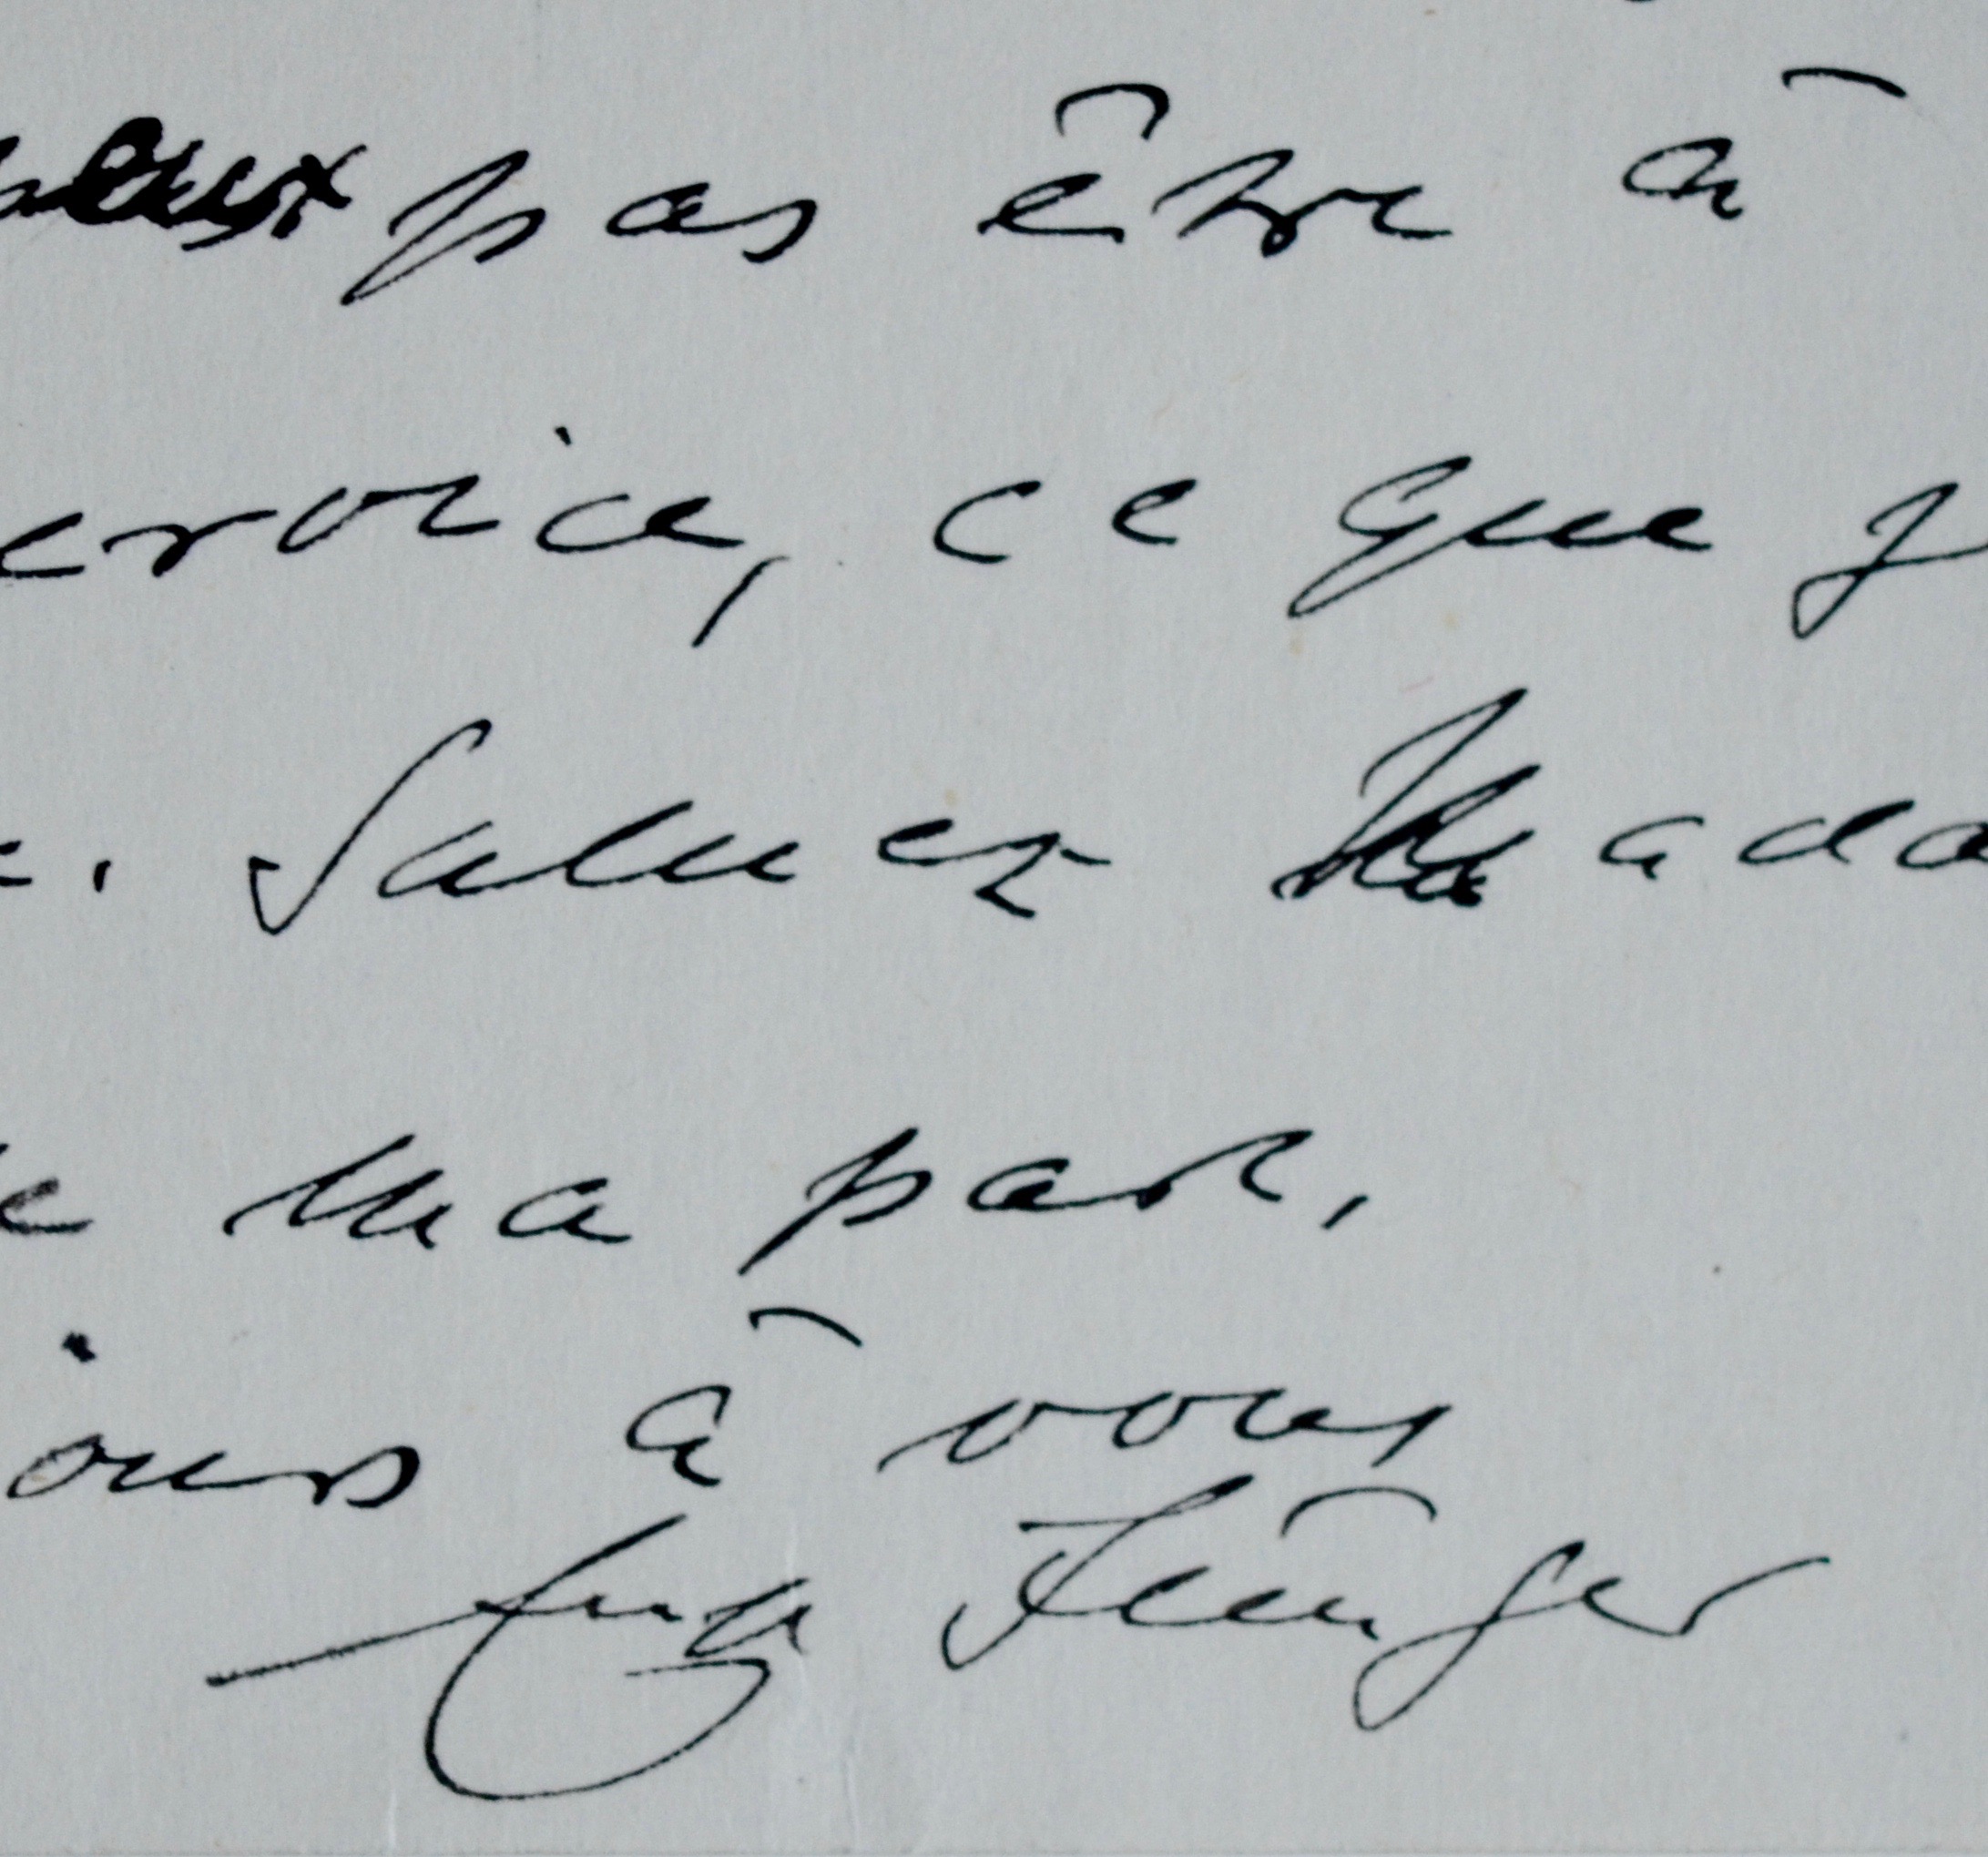 peux pas être à
ervice, ce que j
e. Saluez Mada
e ma part.
ours à vous
Jünger